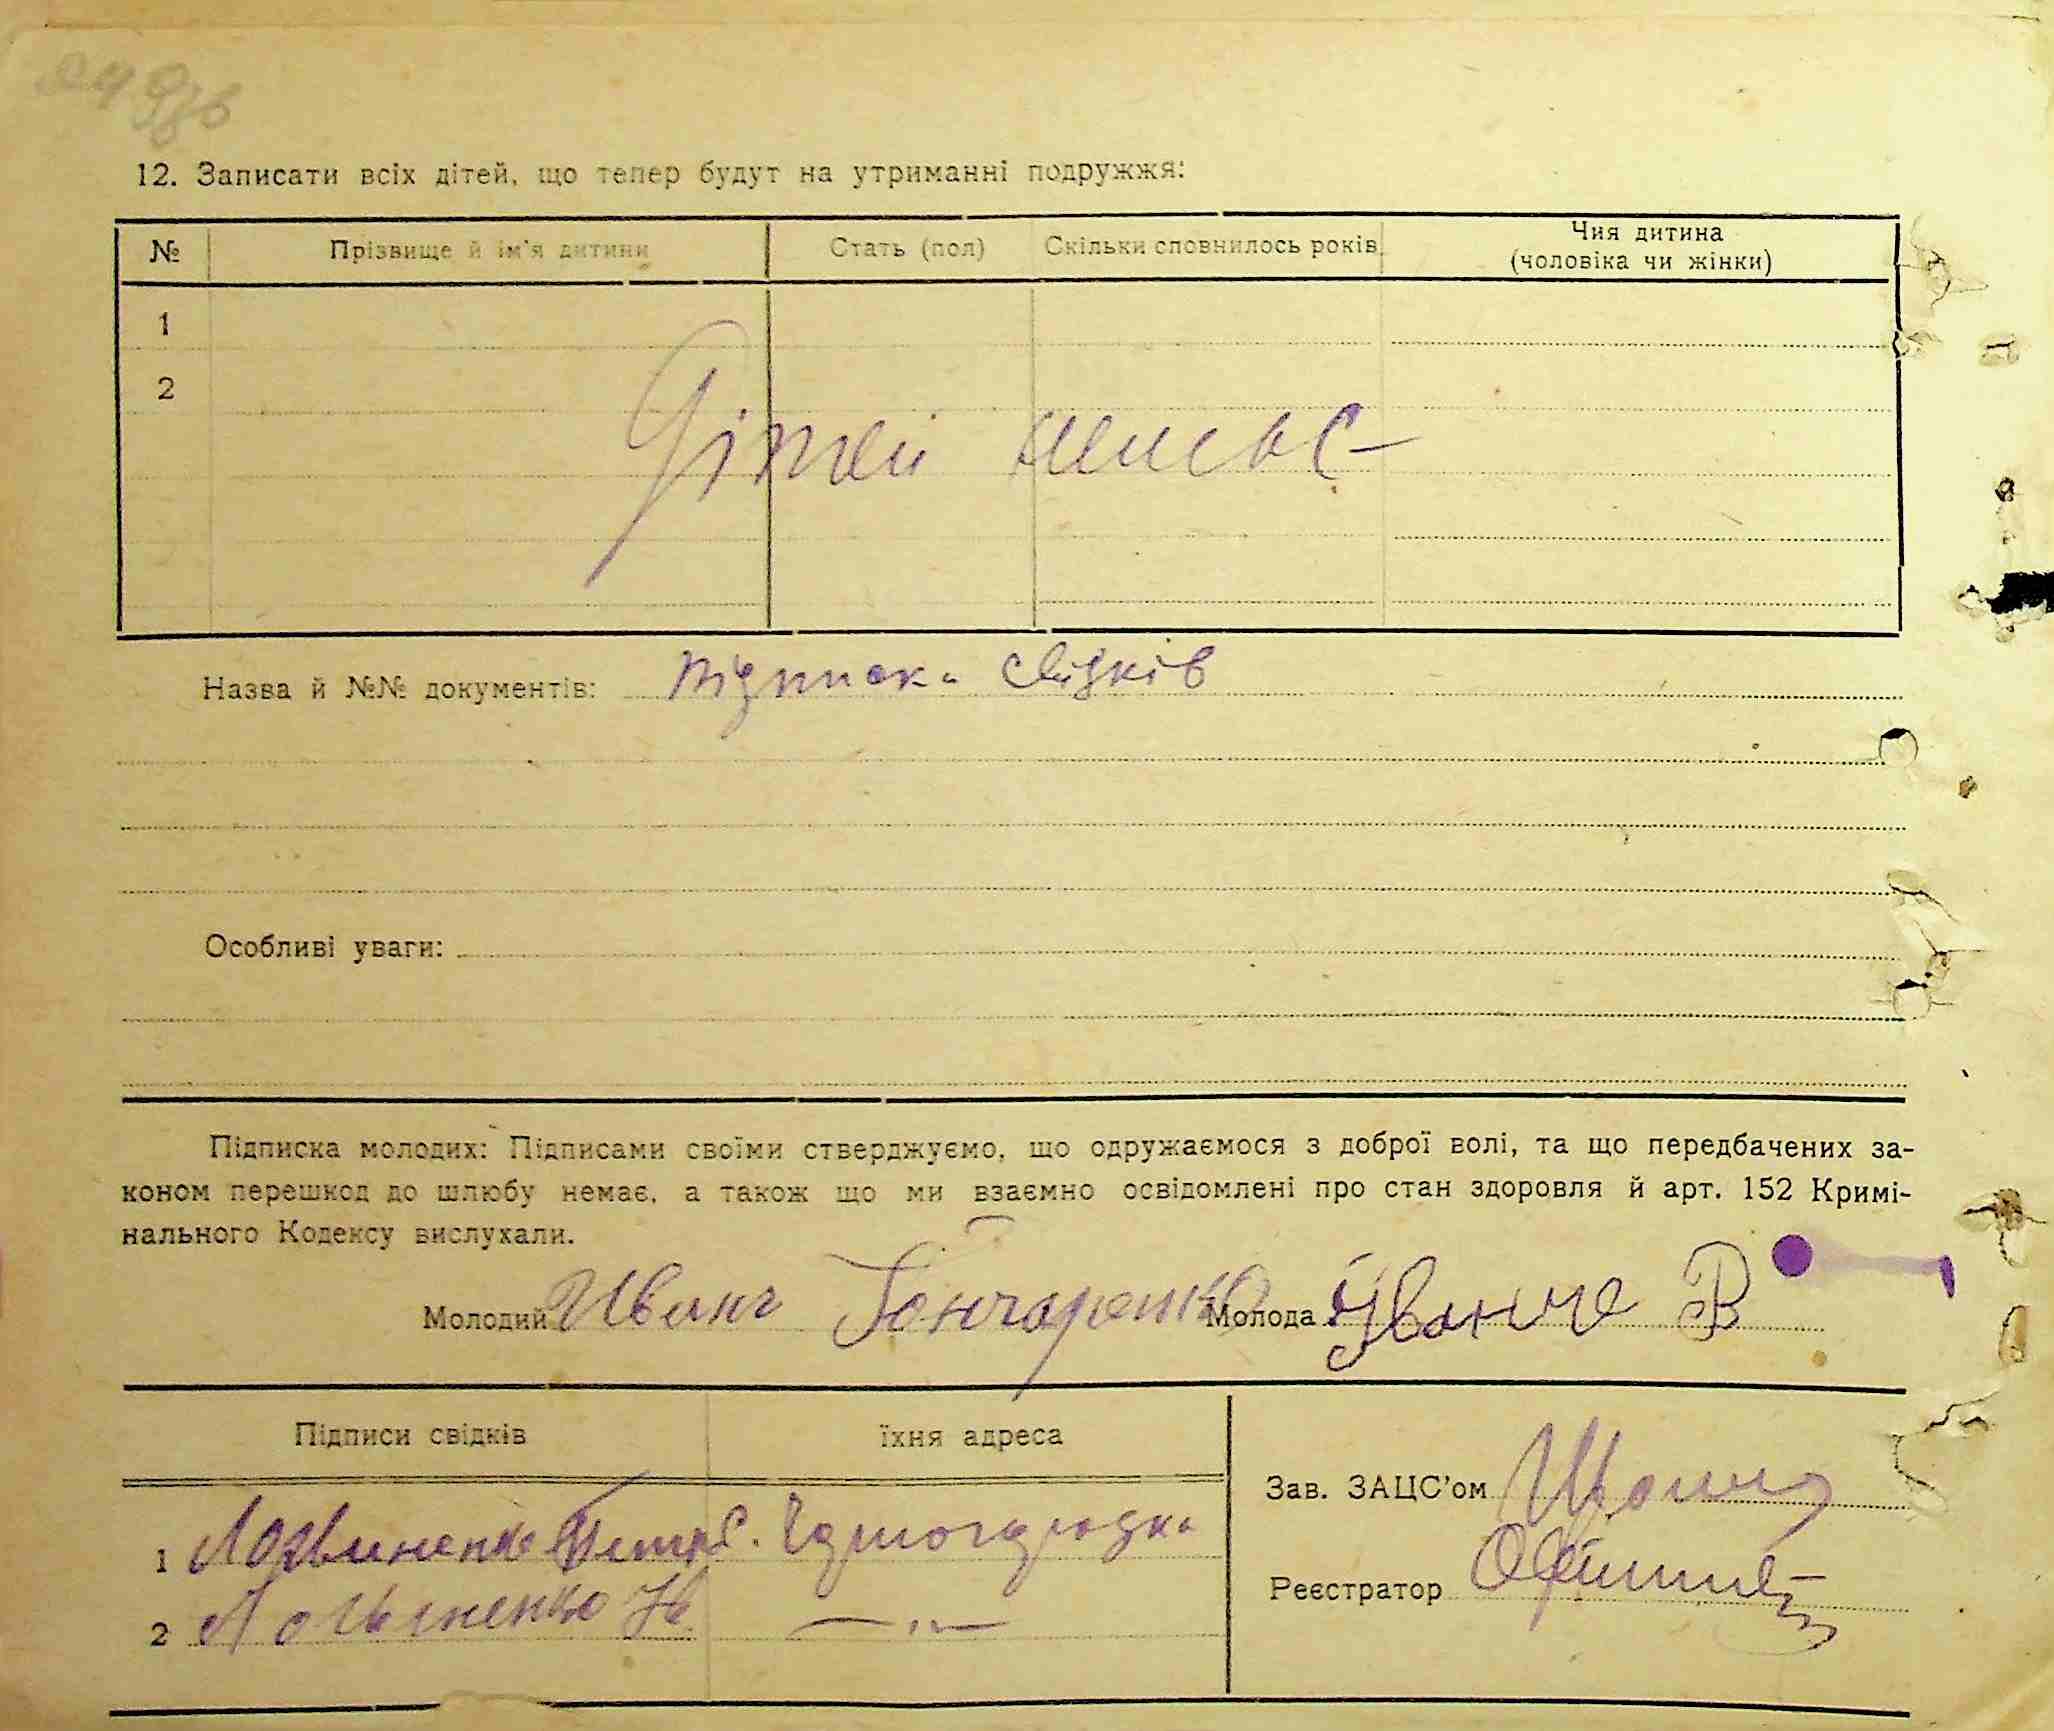 12. Записати всіх дітей, що тепер будут на утриманні подружжя:
№ Прізвище й ім'я дитини Стать (пол) Скільки сповнилось років Чия дитина (чоловіка чи жінки)
1
2
Дітей немає
Назва й №№ документів: підписка свідків
Особливі уваги:
Підписка молодих: Підписами своїми стверджуємо, що одружаємося з доброї волі, та що передбачених за-
коном перешкод до шлюбу немає, а також що ми взаємно освідомлені про стан здоровля й арт. 152 Кримі-
нального Кодексу вислухали.
Молодий Иван Гончаренко Молода В
Підписи свідків їхня адреса
Зав. ЗАЦС'ом
1 Логвиненко Петро
Реєстратор
2 Логвиненко — " —